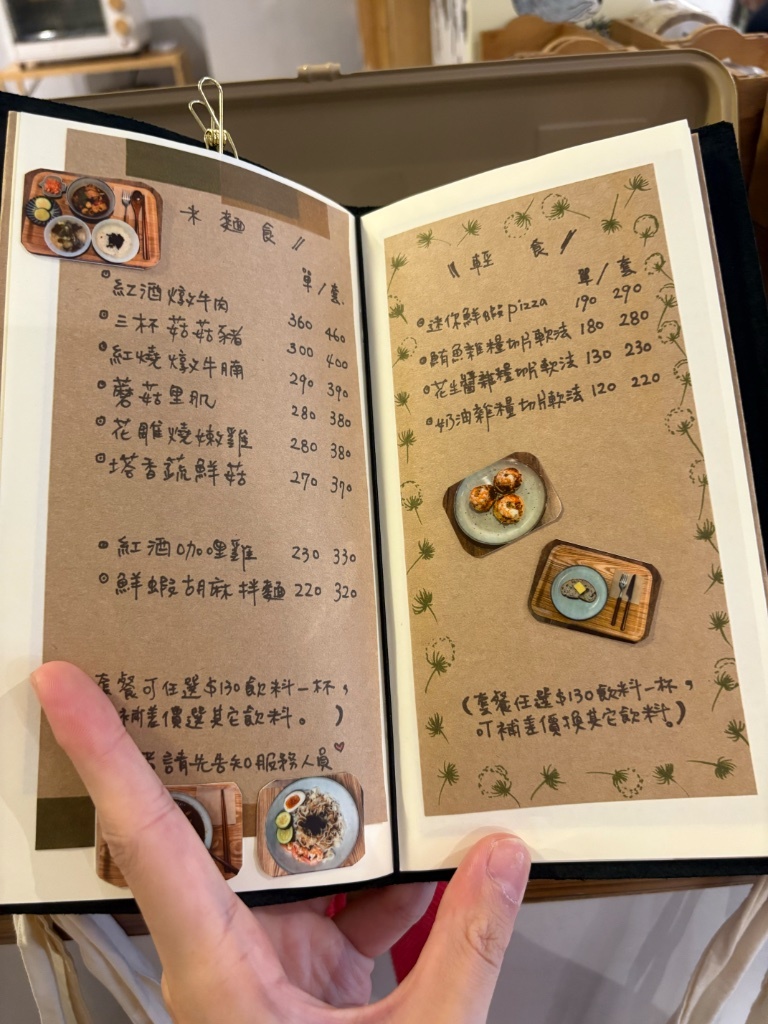 米麵食
單/套
紅酒燉牛肉 360 460
三杯菇菇豬 300 400
紅燒燉牛腩 290 390
蘑菇里肌 280 380
花雕燒嫩雞 280 380
塔香蔬鮮菇 270 370
紅酒咖哩雞 230 330
鮮蝦胡麻拌麵 220 320
套餐可任選$130飲料一杯,
補差價選其它飲料。)
請先告知服務人員♡
輕食
單/套
迷你鮮蝦pizza 190 290
鮪魚雜糧切片軟法 180 280
花生醬雜糧切片軟法 130 230
奶油雜糧切片軟法 120 220
(套餐任選$130飲料一杯,
可補差價換其它飲料。)